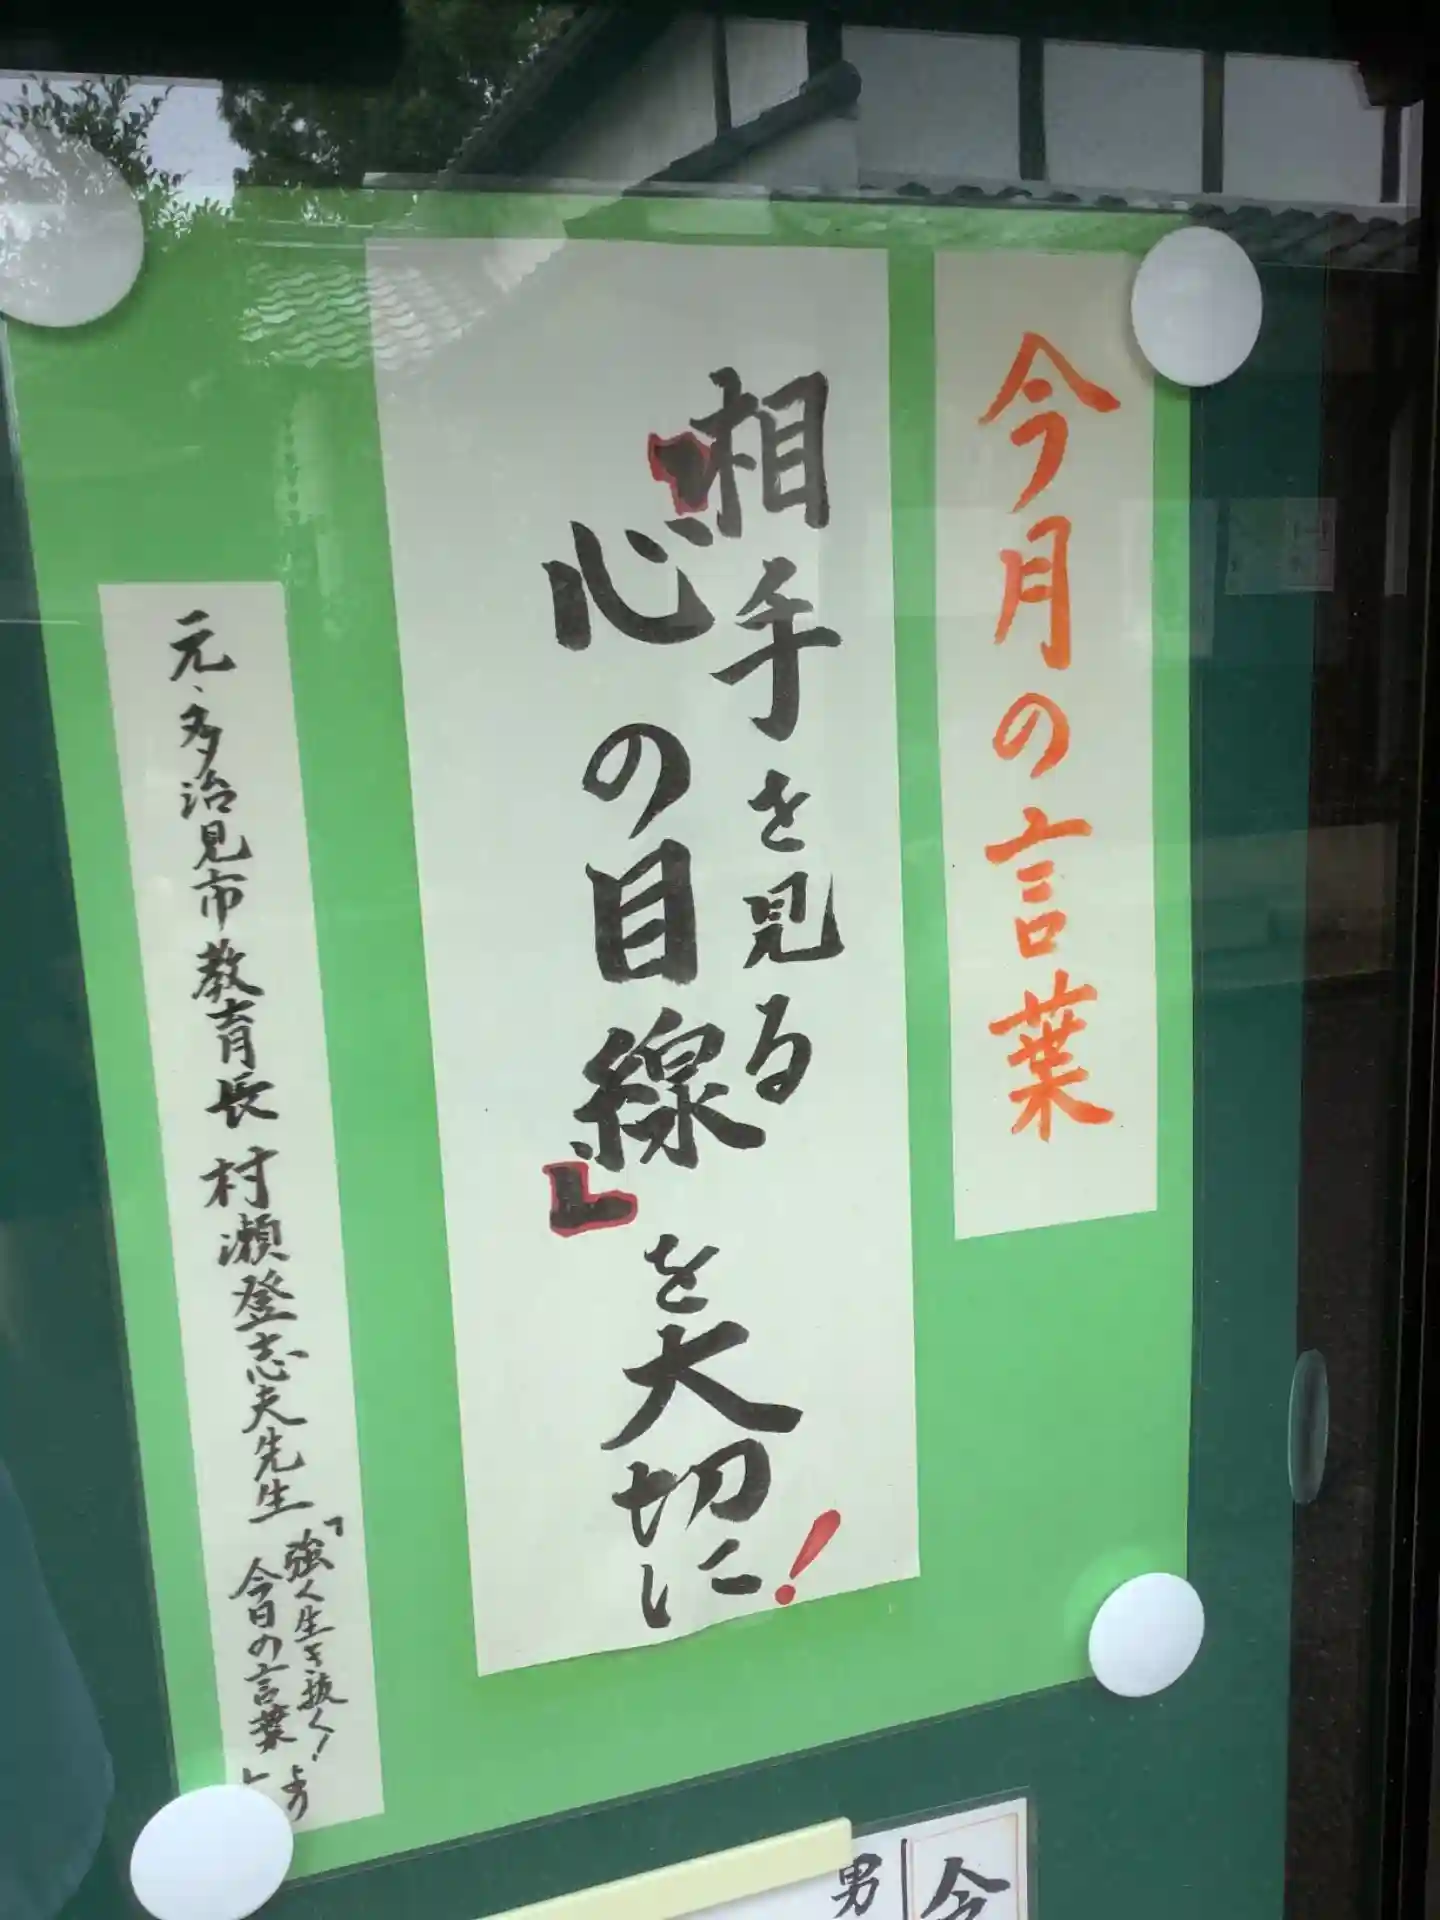 今月の言葉
相手を見る
「心の目線」を大切に!
元、多治見市教育長 村瀬登志夫先生
「強く生き抜く!
今日の言葉」より
今
男